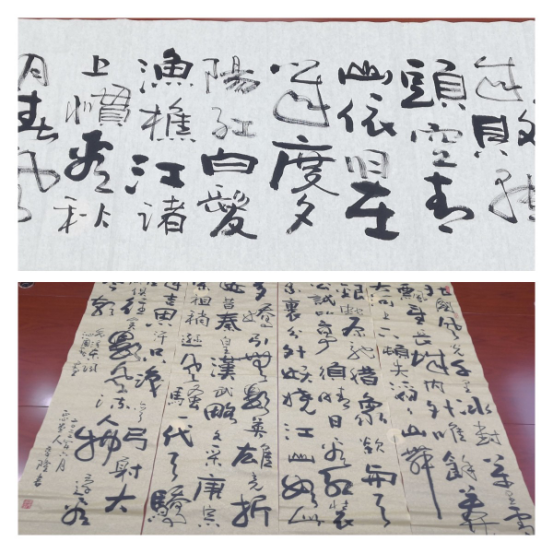 成敗轉
頭空青
山依旧在
幾度夕
陽紅白髮
漁樵江渚
上慣看秋
月春風
北國風光千里冰封萬里雪
飄望長城内外惟餘莽
大河上下頓失滔滔山舞
銀蛇原馳蠟象欲与天
公試比高須晴日看紅裝
素裹分外妖嬈江山如此
多嬌引無數英雄競折
腰惜秦皇漢武略輸文采唐宗
宋祖稍遜風騷一代天驕
成吉思汗只識彎弓射大
雕俱往矣數風流人物還看
今朝